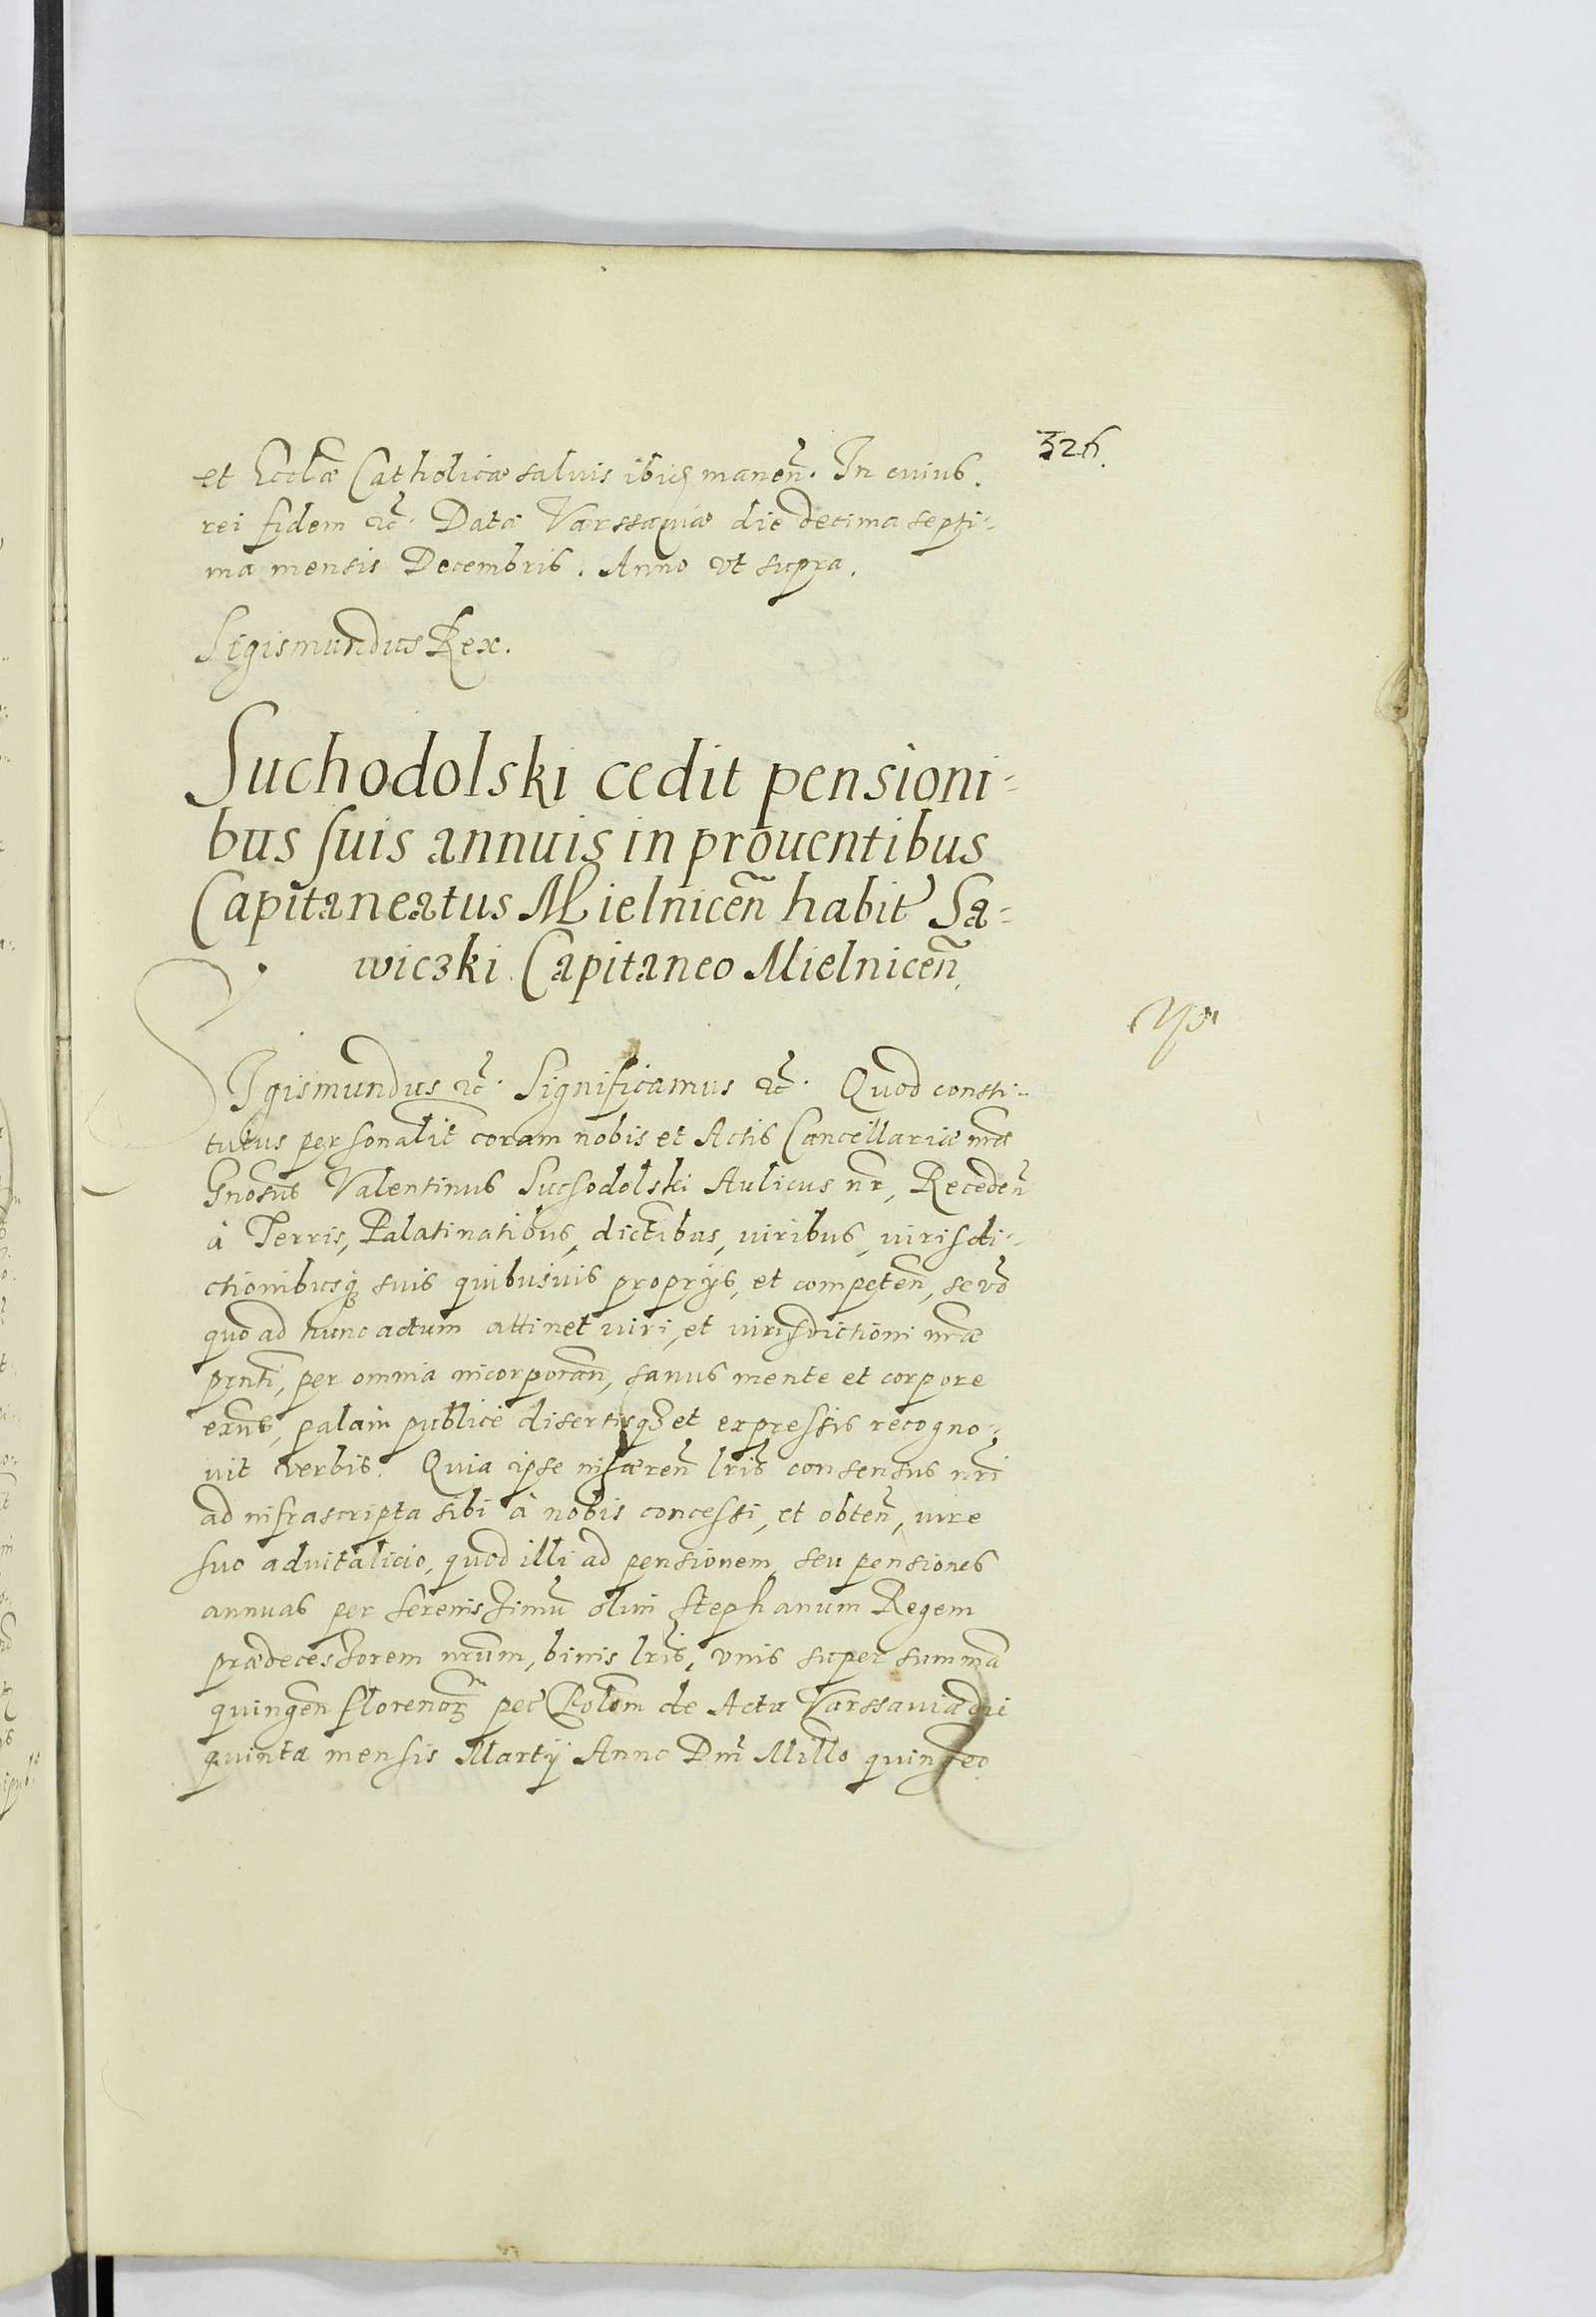 326.
et Eccłæ Catholicæ salvis ibid manen̄. In cuius
rei fidem ꝛc̃. Datæ Varssaviæ die decima septi-
ma mensis Decembris. Anno vt supra.
Sigismundus Rex.
Suchodolski cedit pensioni-
bus suis annuis in prouentibus
Capitaneatus Mielnicen̄ habit̃ Sa-
wiczki Capitaneo Mielnicen̄
SIgismundus ꝛc̃. Significamus ꝛc̃. Quod consti-
tutus personalit̃ coram nobis et Actis Cancellariæ nr̃æ
Gnosus Valentinus Suchodolski Aulicus nr̃, Receden̄
à Terris, Palatinatibus, dictibus, iuribus, iurisdi-
ctionibusq; suis quibusuis proprijs, et competen̄, se vō
quo ad hunc actum attinet iuri, et iurisdictioni nr̃æ
pr̃nti, per omnia incorporan̄, sanus mente et corpore
exn̄s, palam publicè disertisq; et expressis recogno-
uit verbis. Quia ipse inhæren̄ lr̃is consensus nr̃i
ad infrascripta sibi à nobis concessi, et obten̄, iure
suo aduitalicio, quod illi ad pensionem, seu pensiones
annuas per serenissimū olim Stephanum Regem
prædecessorem nr̃um, binis lr̃is, vnis super summā
quingen̄ florenoꝝ pec̃ Polon̄ de Actu Varssauiæ die
quinta mensis Martij Anno Dn̄i Millō quingeō